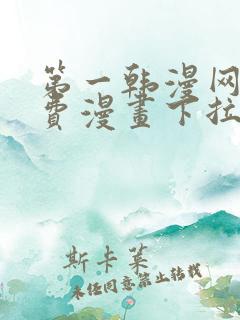 第一韩漫网
费漫畫下拉
斯卡莱
未经同意禁止转载